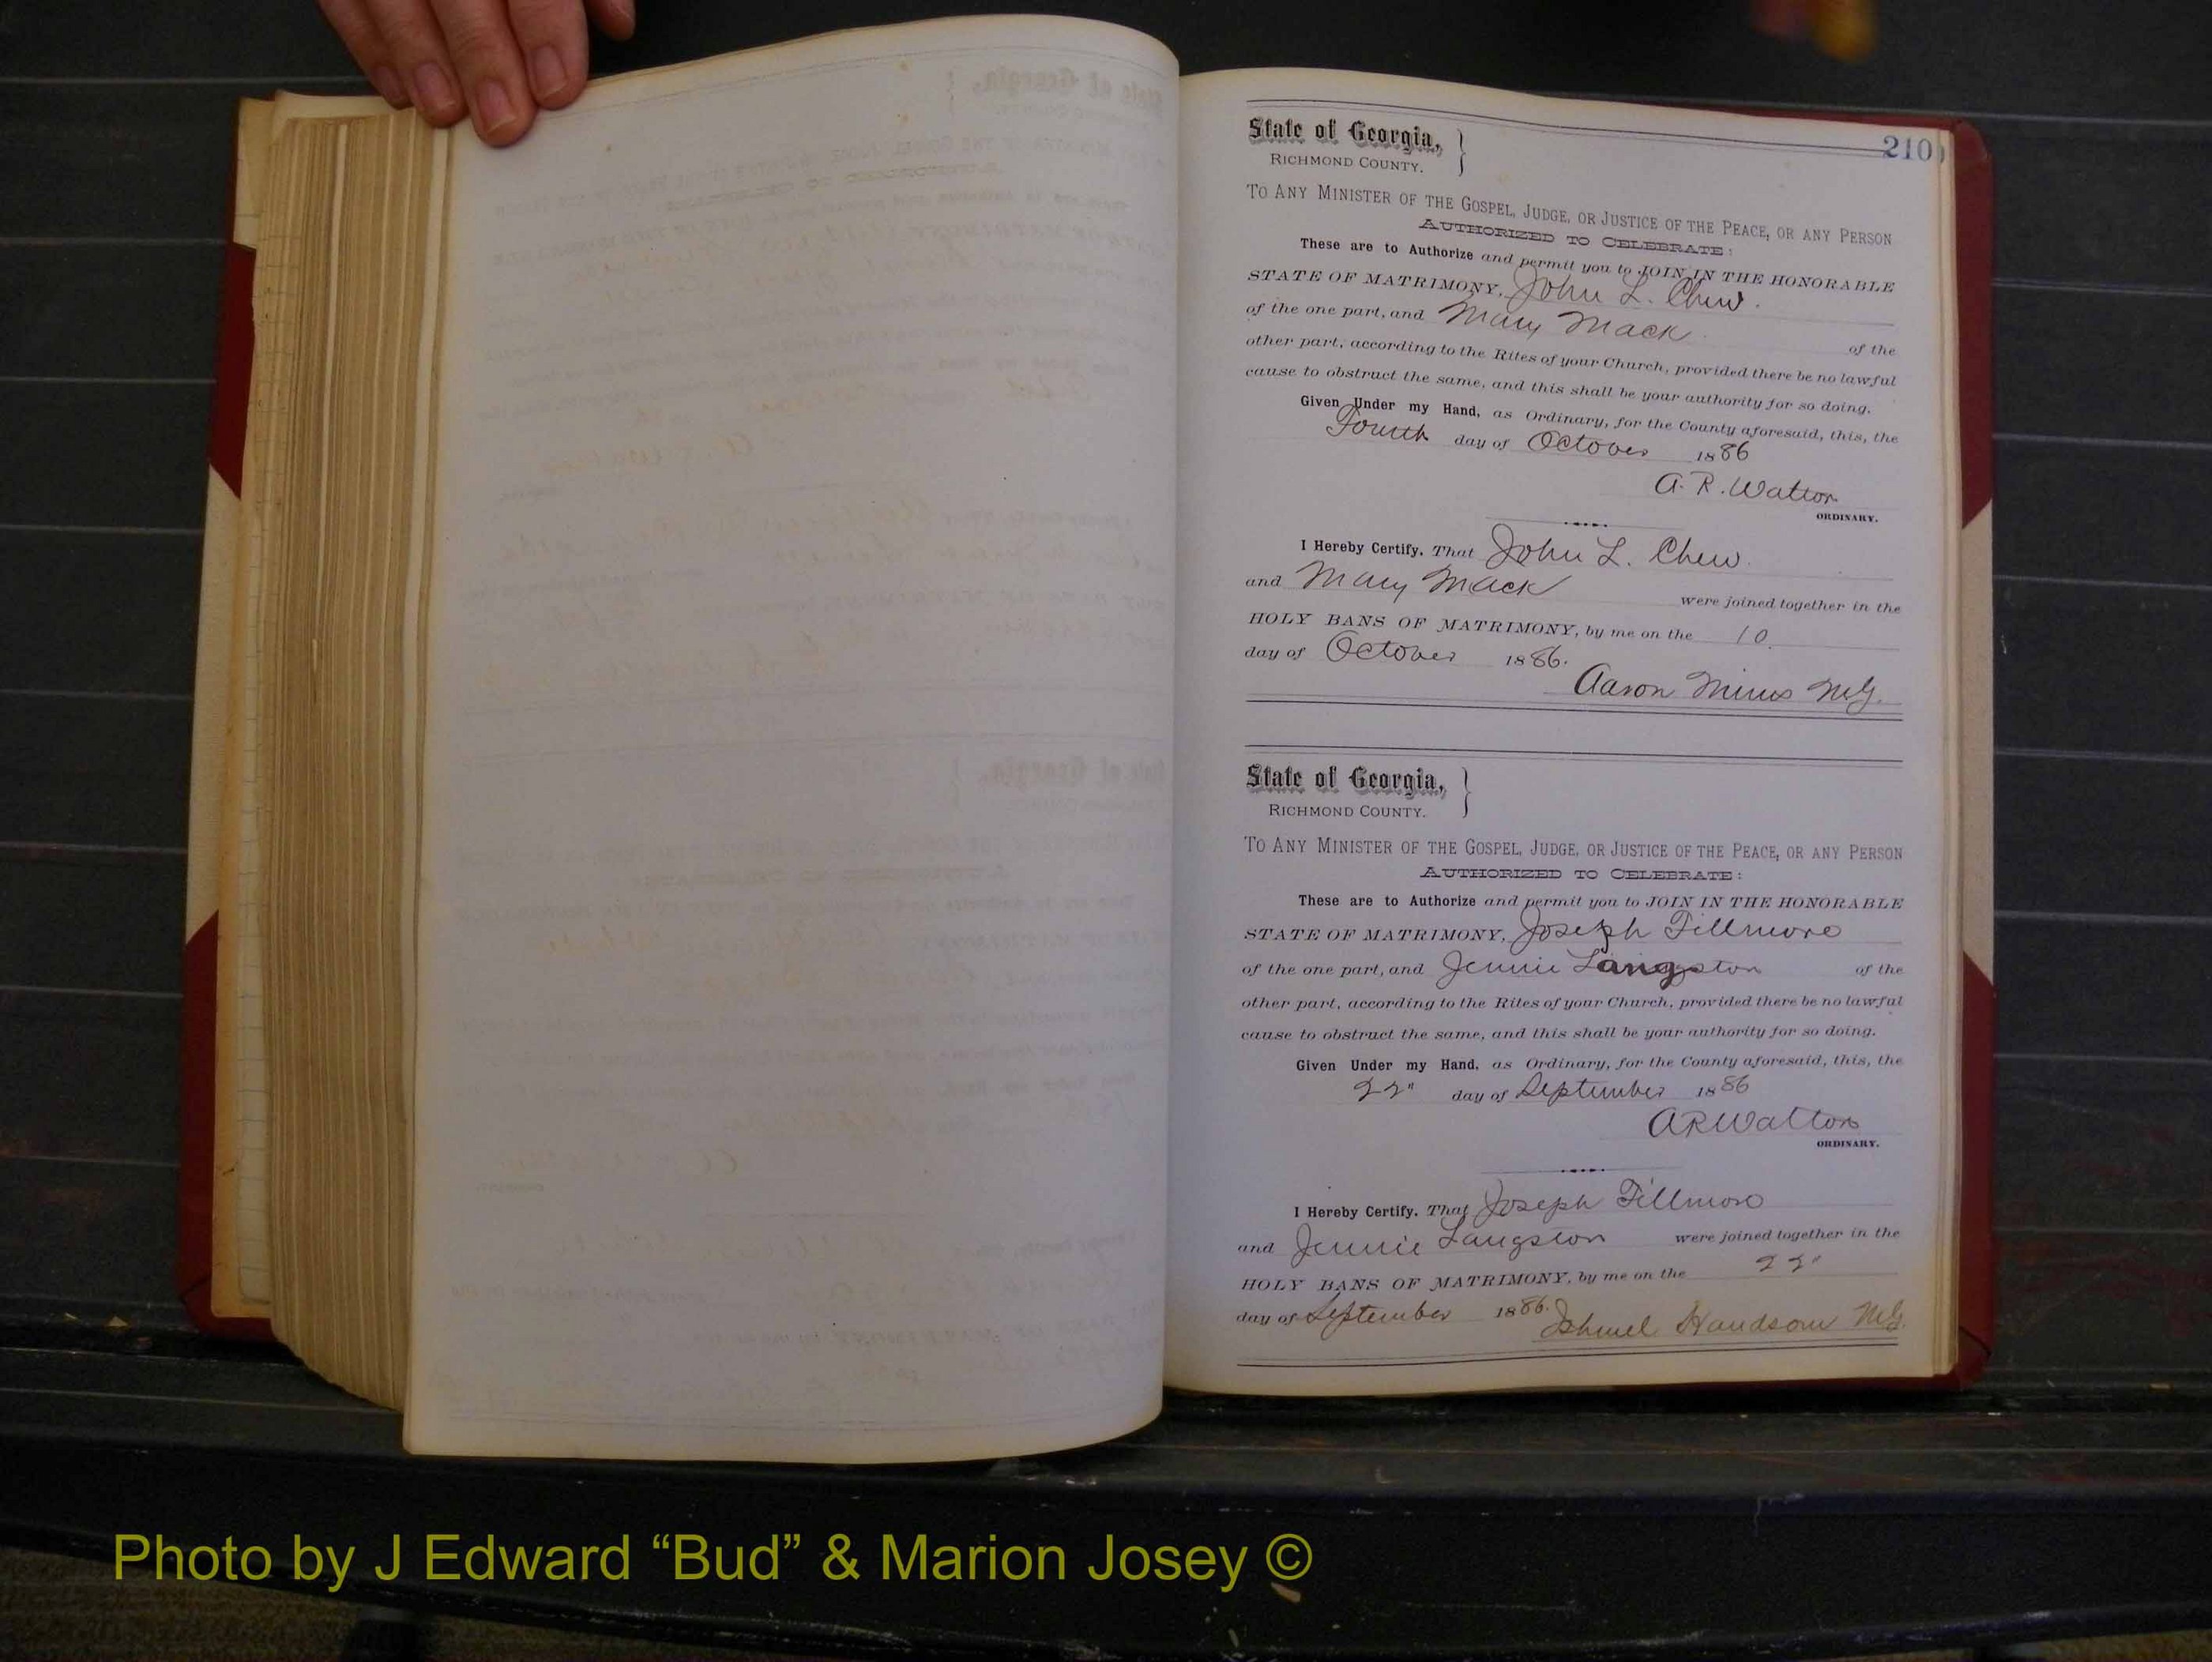 210
State of Georgia, }
RICHMOND COUNTY.
TO ANY MINISTER OF THE GOSPEL, JUDGE, OR JUSTICE OF THE PEACE, OR ANY PERSON
AUTHORIZED TO CELEBRATE:
These are to Authorize and permit you to JOIN IN THE HONORABLE
STATE OF MATRIMONY, John L. Chew.
of the one part, and Mary Mack of the
other part, according to the Rites of your Church, provided there be no lawful
cause to obstruct the same, and this shall be your authority for so doing.
Given Under my Hand, as Ordinary, for the County aforesaid, this, the
Fourth day of October 1886
A. R. Walton
ORDINARY.
I Hereby Certify, That John L. Chew.
and Mary Mack were joined together in the
HOLY BANS OF MATRIMONY, by me on the 10.
day of October 1886.
Aaron Mims M.G.
State of Georgia, }
RICHMOND COUNTY.
TO ANY MINISTER OF THE GOSPEL, JUDGE, OR JUSTICE OF THE PEACE, OR ANY PERSON
AUTHORIZED TO CELEBRATE:
These are to Authorize and permit you to JOIN IN THE HONORABLE
STATE OF MATRIMONY, Joseph Fillmore
of the one part, and Jennie Langston of the
other part, according to the Rites of your Church, provided there be no lawful
cause to obstruct the same, and this shall be your authority for so doing.
Given Under my Hand, as Ordinary, for the County aforesaid, this, the
22" day of September 1886
A R Walton
ORDINARY.
I Hereby Certify, That Joseph Fillmore
and Jennie Langston were joined together in the
HOLY BANS OF MATRIMONY, by me on the 22"
day of September 1886. Ishmel Handsom M.G.
Photo by J Edward “Bud” & Marion Josey ©